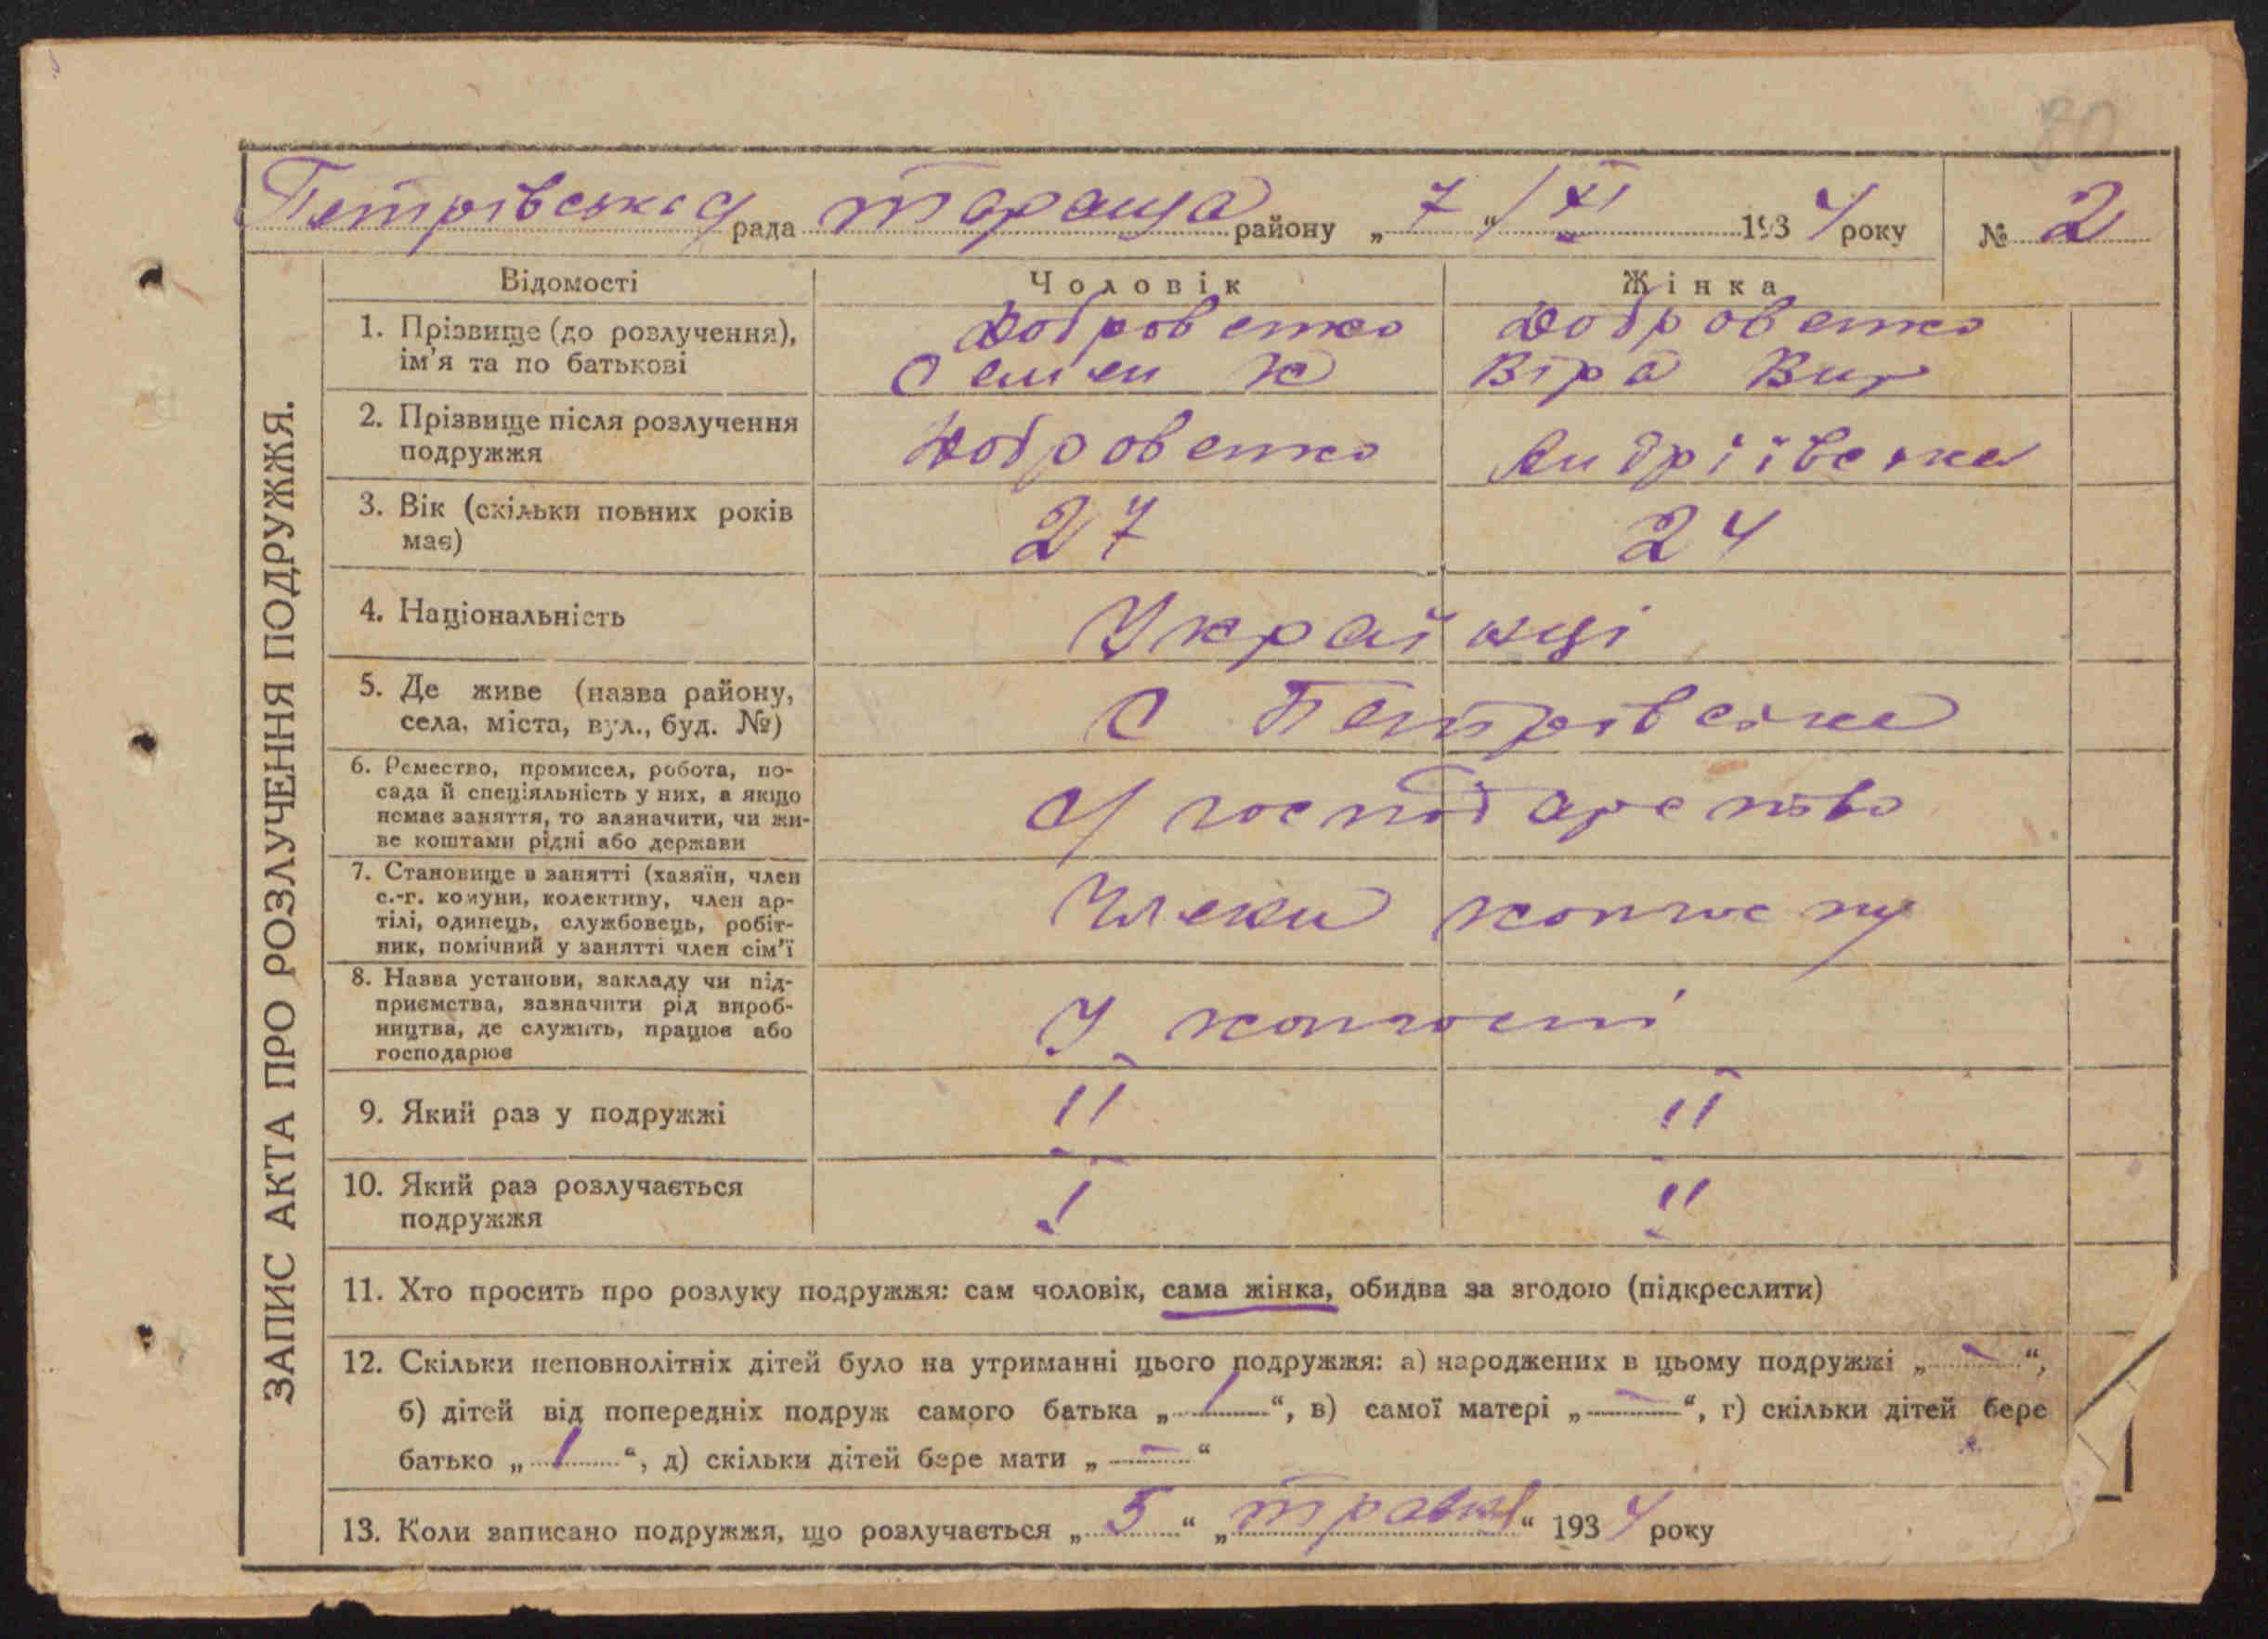 80
Петрівська рада Тараща району „7“ / XI 1934 року № 2
ЗАПИС АКТА ПРО РОЗЛУЧЕННЯ ПОДРУЖЖЯ.
Відомості Чоловік Жінка
1. Прізвище (до розлучення), Добровенко Добровенко
ім’я та по батькові Семен К Віра Вик
2. Прізвище після розлучення
подружжя Добровенко Андріївська
3. Вік (скільки повних років
має) 27 24
4. Національність Українці
5. Де живе (назва району,
села, міста, вул., буд. №) С Петрівське
6. Ремество, промисел, робота, по-
сада й спеціяльність у них, а якщо
немає заняття, то зазначити, чи жи-
ве коштами рідні або держави
с/господарство
7. Становище в занятті (хазяїн, член
с.-г. комуни, колективу, член ар-
тілі, одинець, службовець, робіт-
ник, помічний у занятті член сім’ї
Члени колгоспу
8. Назва установи, закладу чи під-
приємства, зазначити рід вироб-
ництва, де служить, працює або
господарює
У колгоспі
9. Який раз у подружжі II II
10. Який раз розлучається
подружжя I II
11. Хто просить про розлуку подружжя: сам чоловік, сама жінка, обидва за згодою (підкреслити)
12. Скільки неповнолітніх дітей було на утриманні цього подружжя: а) народжених в цьому подружжі „ — “,
б) дітей від попередніх подруж самого батька „ 1 “, в) самої матері „ — “, г) скільки дітей бере
батько „ 1 “, д) скільки дітей бере мати „ — “
13. Коли записано подружжя, що розлучається „ 5 “ „ травня “ 1934 року